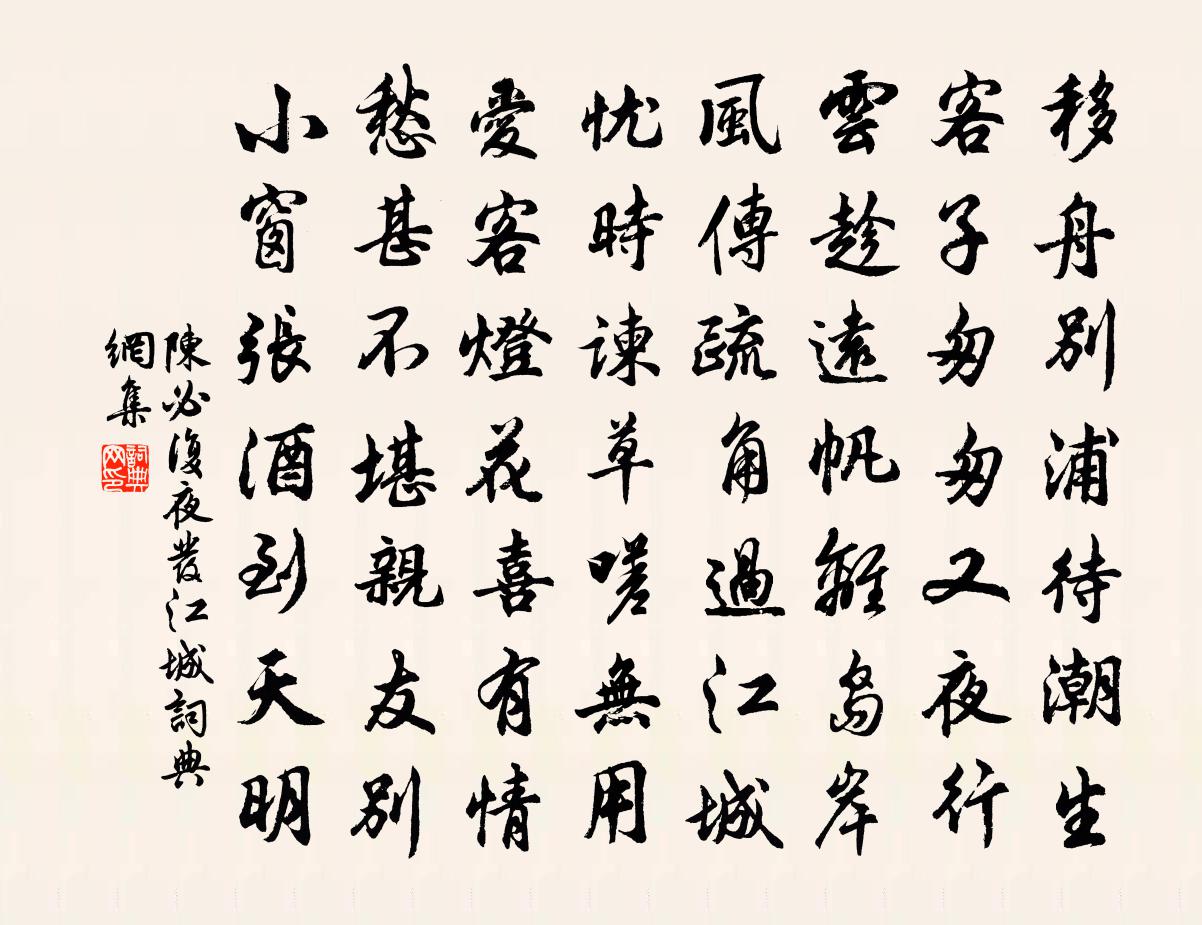 移舟別浦待潮生
客子匆匆又夜行
雲趁遠帆離島岸
風傳疏角過江城
忧時諫草嗟無用
愛客燈花喜有情
愁甚不堪親友別
小窗張酒到天明
陳必復夜發江城詞典
網集
詞典
网印